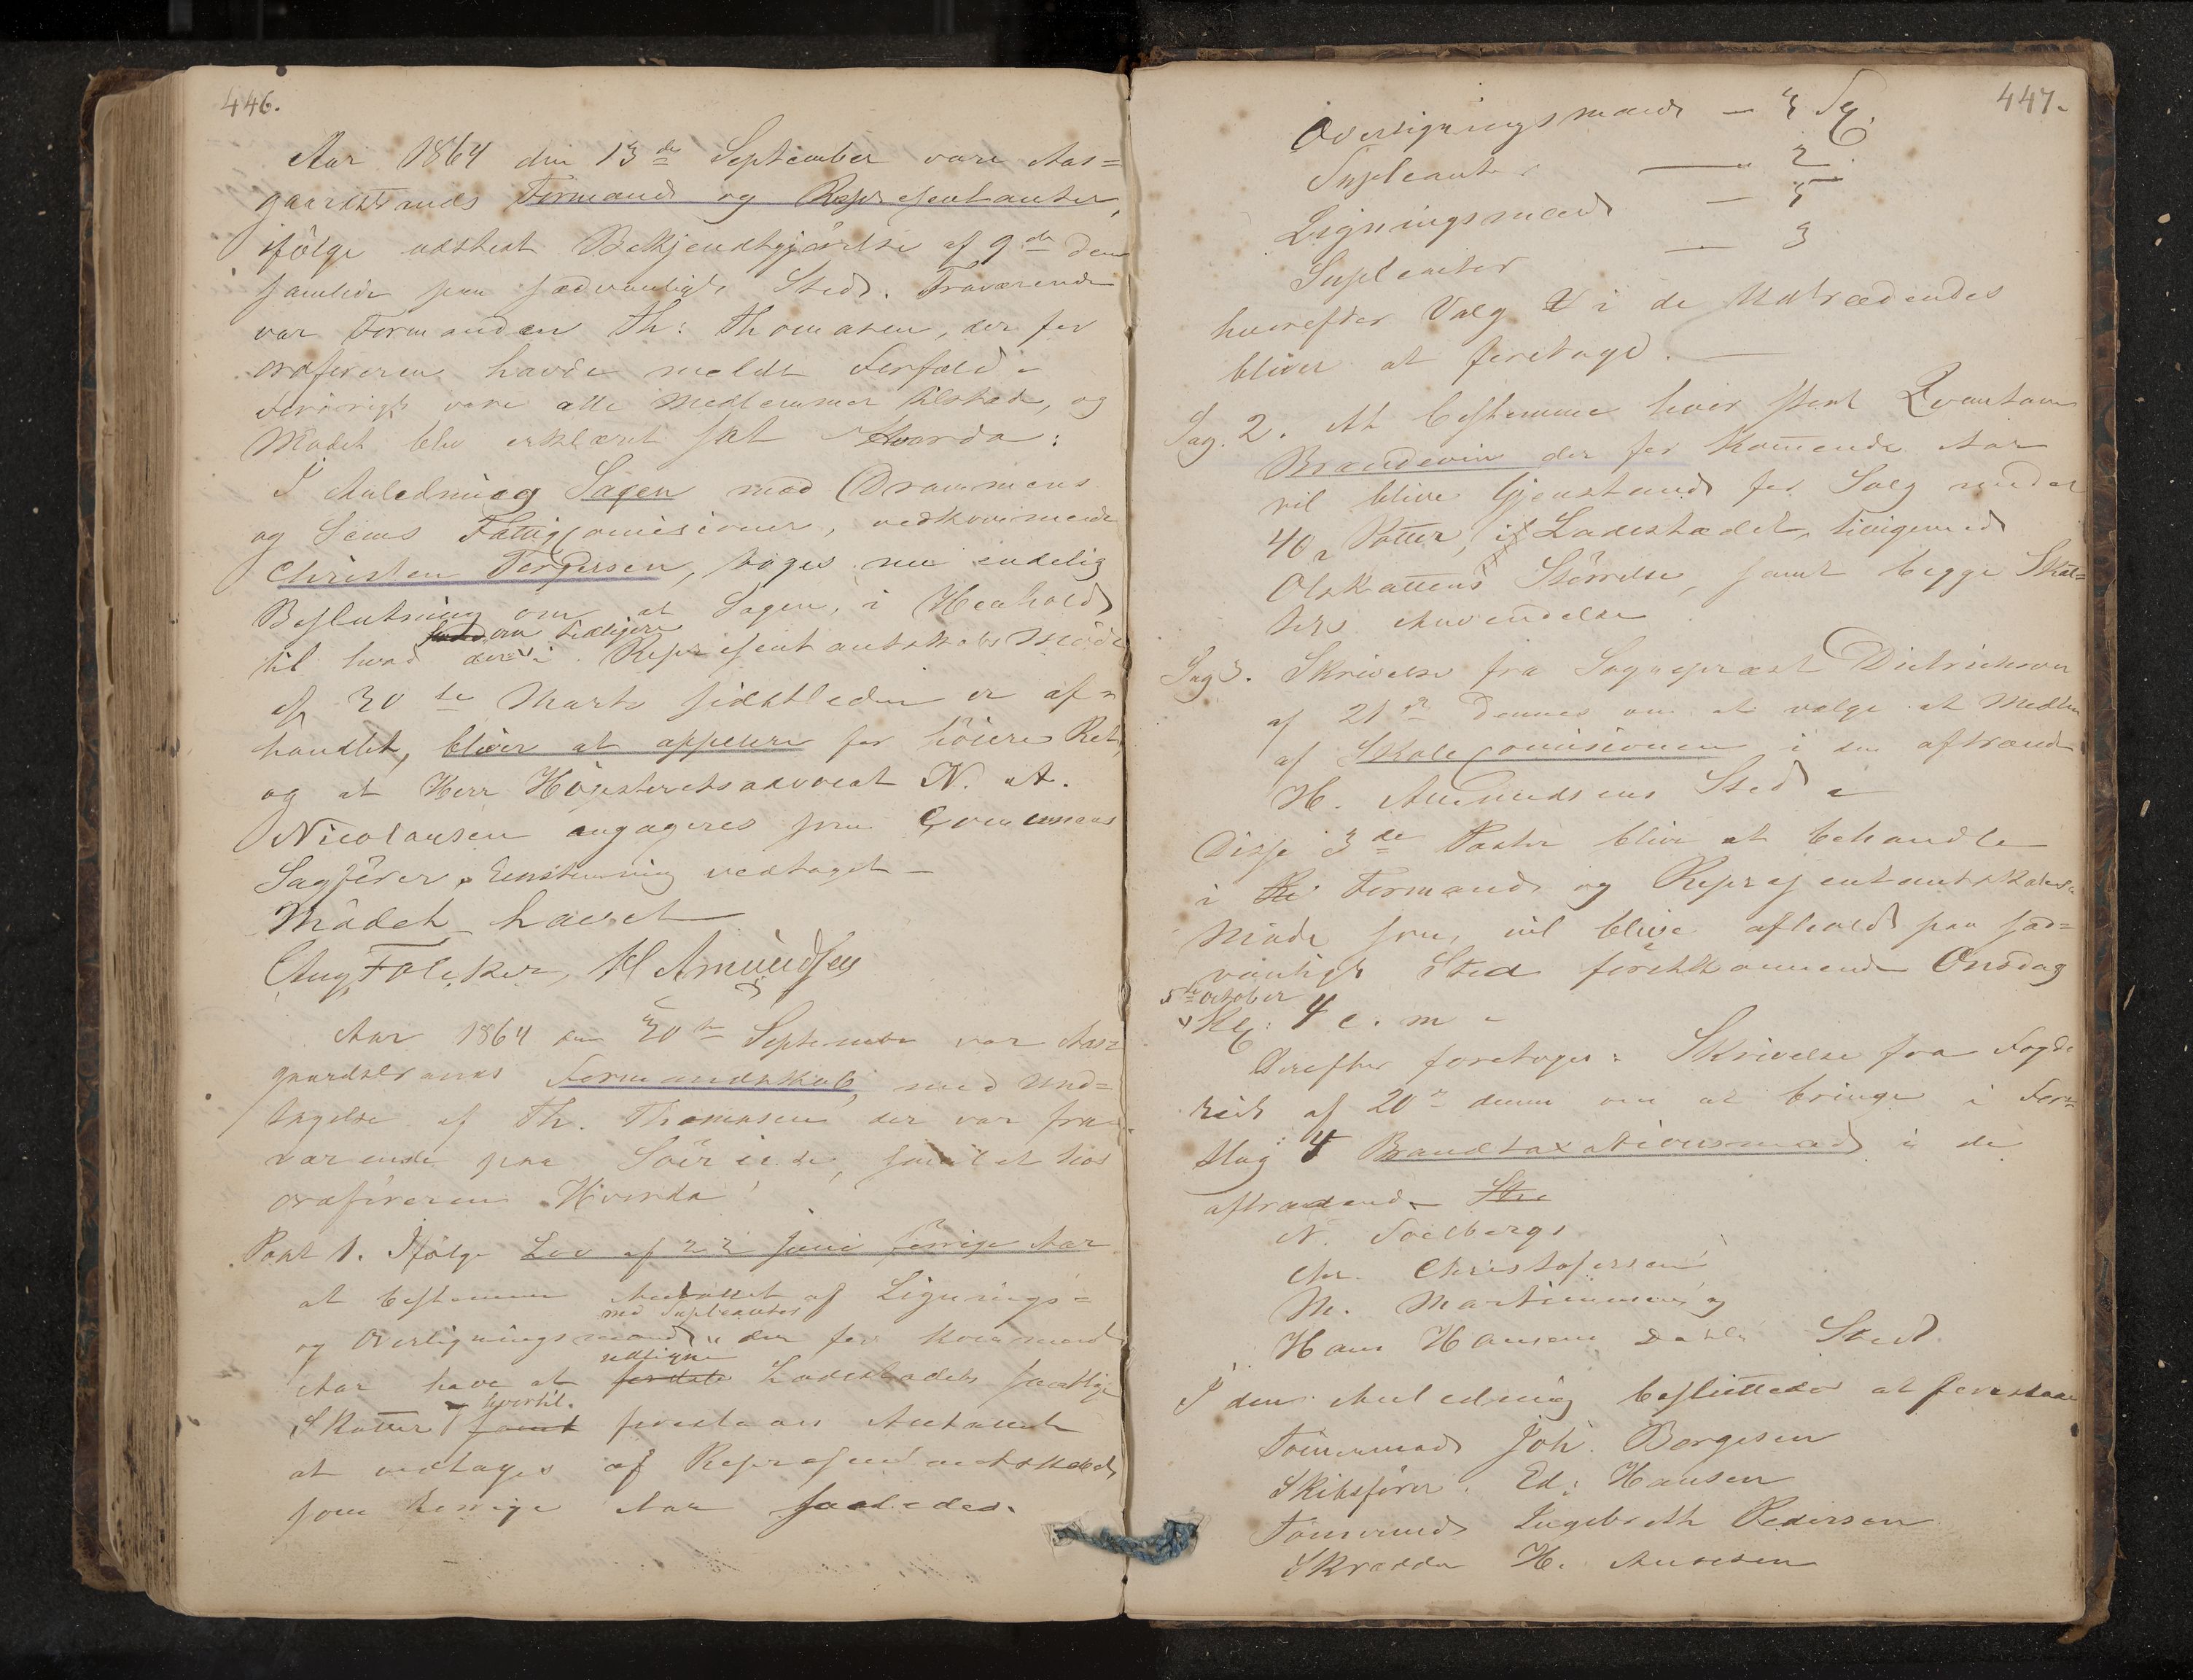 446.
Aar 1864 den 13de September vare Aas=
gaardstrands Formænd og Repræsentanter,
ifölge udstedt Bekjendtgjörelse af 9de dennes
samlede paa sædvanligt Sted. Fraværende
var Formanden Th: Thomasen, der for
ordföreren havde meldt Forfald.
Forövrigt vare alle Medlemmer tilstede, og
Mödet blev erklæret sat Hvorda:
I Anledning Sagen mod Drammens
og Sems Fattigcomisioner, vedkommende
Christen Torgersen, toges nu endelig
Beslutning om at Sagen, i Henhold
til hvad derom tidligere i Repræsentantskabs Möde
af 30te Marts sidstleden er af=
handlet, bliver at appelere for höiere Ret,
og at Herr Höiesteretsadvocat N. A.
Nicolausen engageres som Communens
Sagförer. Eenstemmig vedtaget –
Mödet hævet
Aug. Fölcker, H Amundsen
Aar 1864 den 30te September var Aas=
gaardstrands Formandskab, med Und=
tagelse af Th. Thomasen der var fra=
værende paa Söereise, samlet hos
ordföreren Hvorda
Post 1. Ifölge Lov af 22 Juni förrige Aar
at bestemme Antallet af Lignings=
og Overligningsmænd med Supleanter der for kommende
Aar have at fordele udligne Ladestedets samtlige
Skatter samt hvortil foreslaaes Antallet
at vedtages af Repræsentantskabet
som forrige Aar saaledes.
447.
Overligningsmænd – 3 Stk.
Supleanter — 2
Ligningsmænd – 5
Supleanter — 3
hvorefter Valg i de Udtrædendes
bliver at foretage. —
Sag. 2. At bestemme hvor stort Qvantum
Brændeviin der for kommende Aar
vil blive Gjenstand for Salg under
40 Potter, i Ladestedet, tilligemed
Ölskattens Störrelse, samt begge Skat=
ters Anvendelse
Sag 3. Skrivelse fra Sognepræst Dietrichson
af 21de dennes om at vælge et Medlem
af Skolecomisionen i den aftrædende
H. Amundsens Sted
Disse 3de Poster blive at behandle
i Formænd og Repræsentantskabs
Möde som vil blive afholdt paa sæd=
vanligt Sted förstkommende Onsdag
5te October
Kl: 4 e. m.
Derefter foretoges: Skrivelse fra Fogde
riet af 20de dennes om at bringe i For=
slag 4 Brandtaxationsmænd i de
aftrædende Sted
N. Soelbergs
Chr. Christofersens
M. Martinsens og
Hans Hansens Sted
I den Anledning besluttedes at foreslaae
Tömmermand Joh. Borgesen
Skibsförer Ed: Hansen
Tömmermand Ingebreth Pedersen
Skrædder H. Andersen